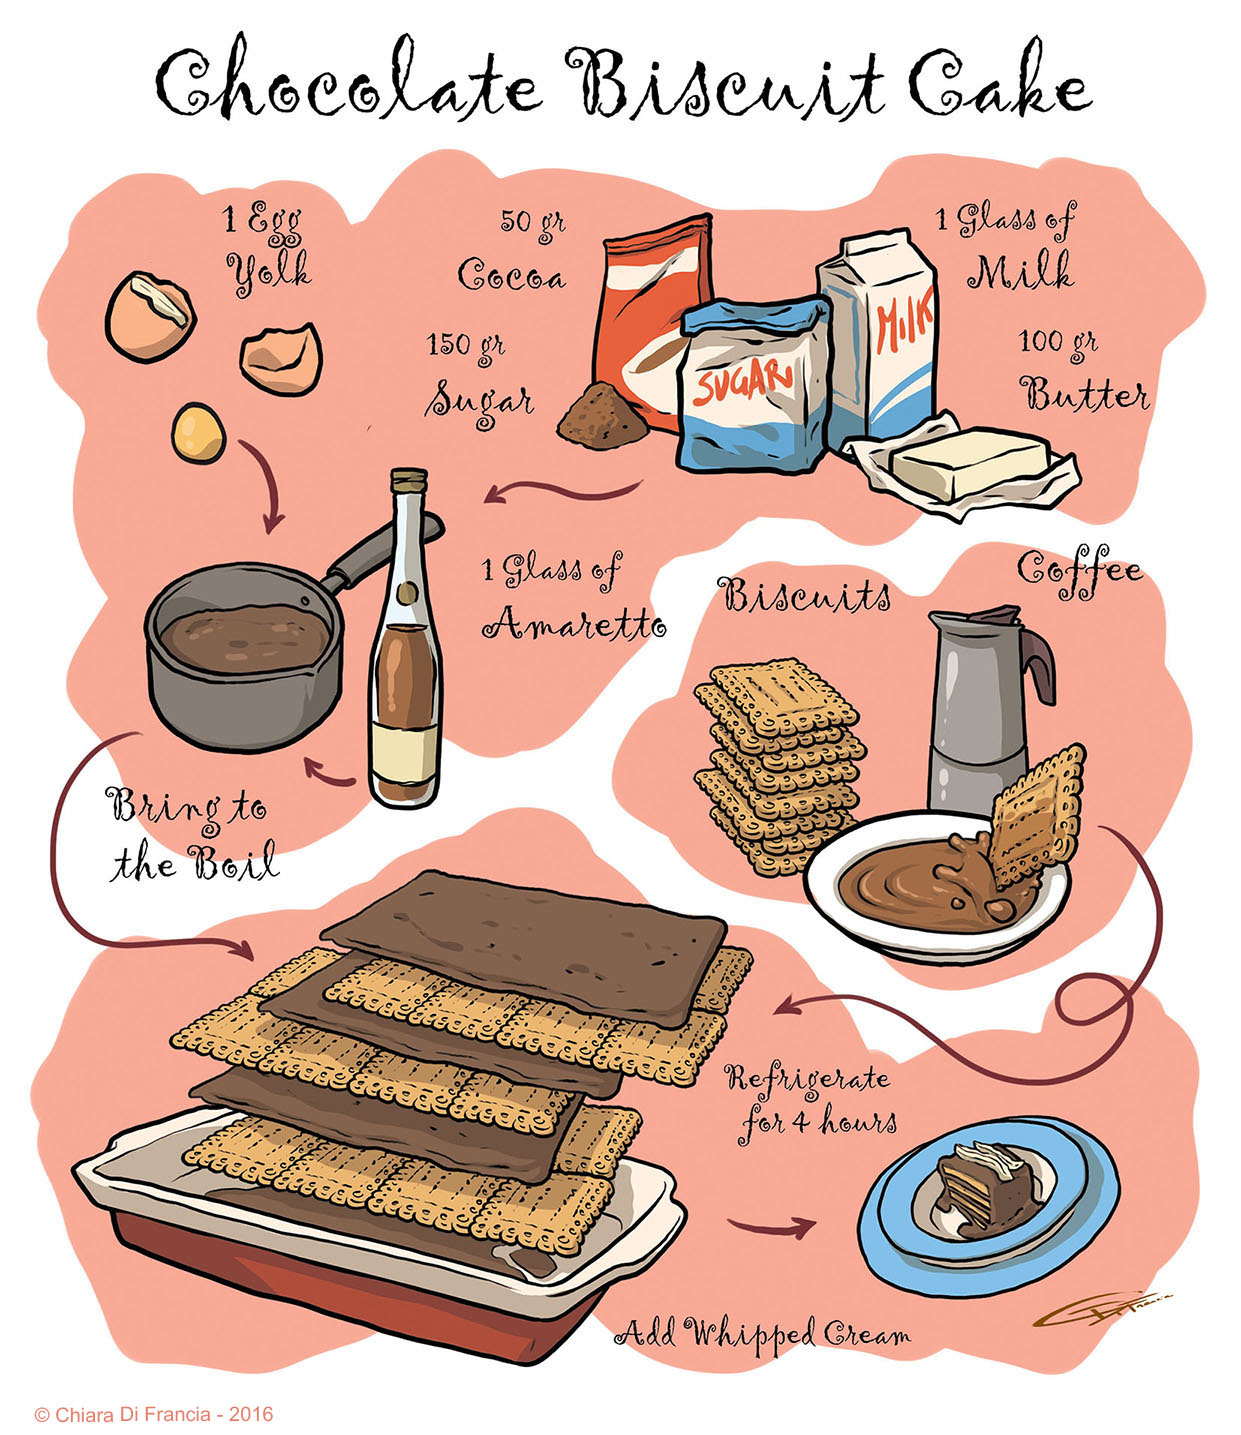 Chocolate Biscuit Cake
1 Egg
Yolk
50 gr
Cocoa
150 gr
Sugar
SUGAR
MilK
1 Glass of
Milk
100 gr
Butter
1 Glass of
Amaretto
Biscuits
Coffee
Bring to
the Boil
Refrigerate
for 4 hours
Add Whipped Cream
© Chiara Di Francia - 2016